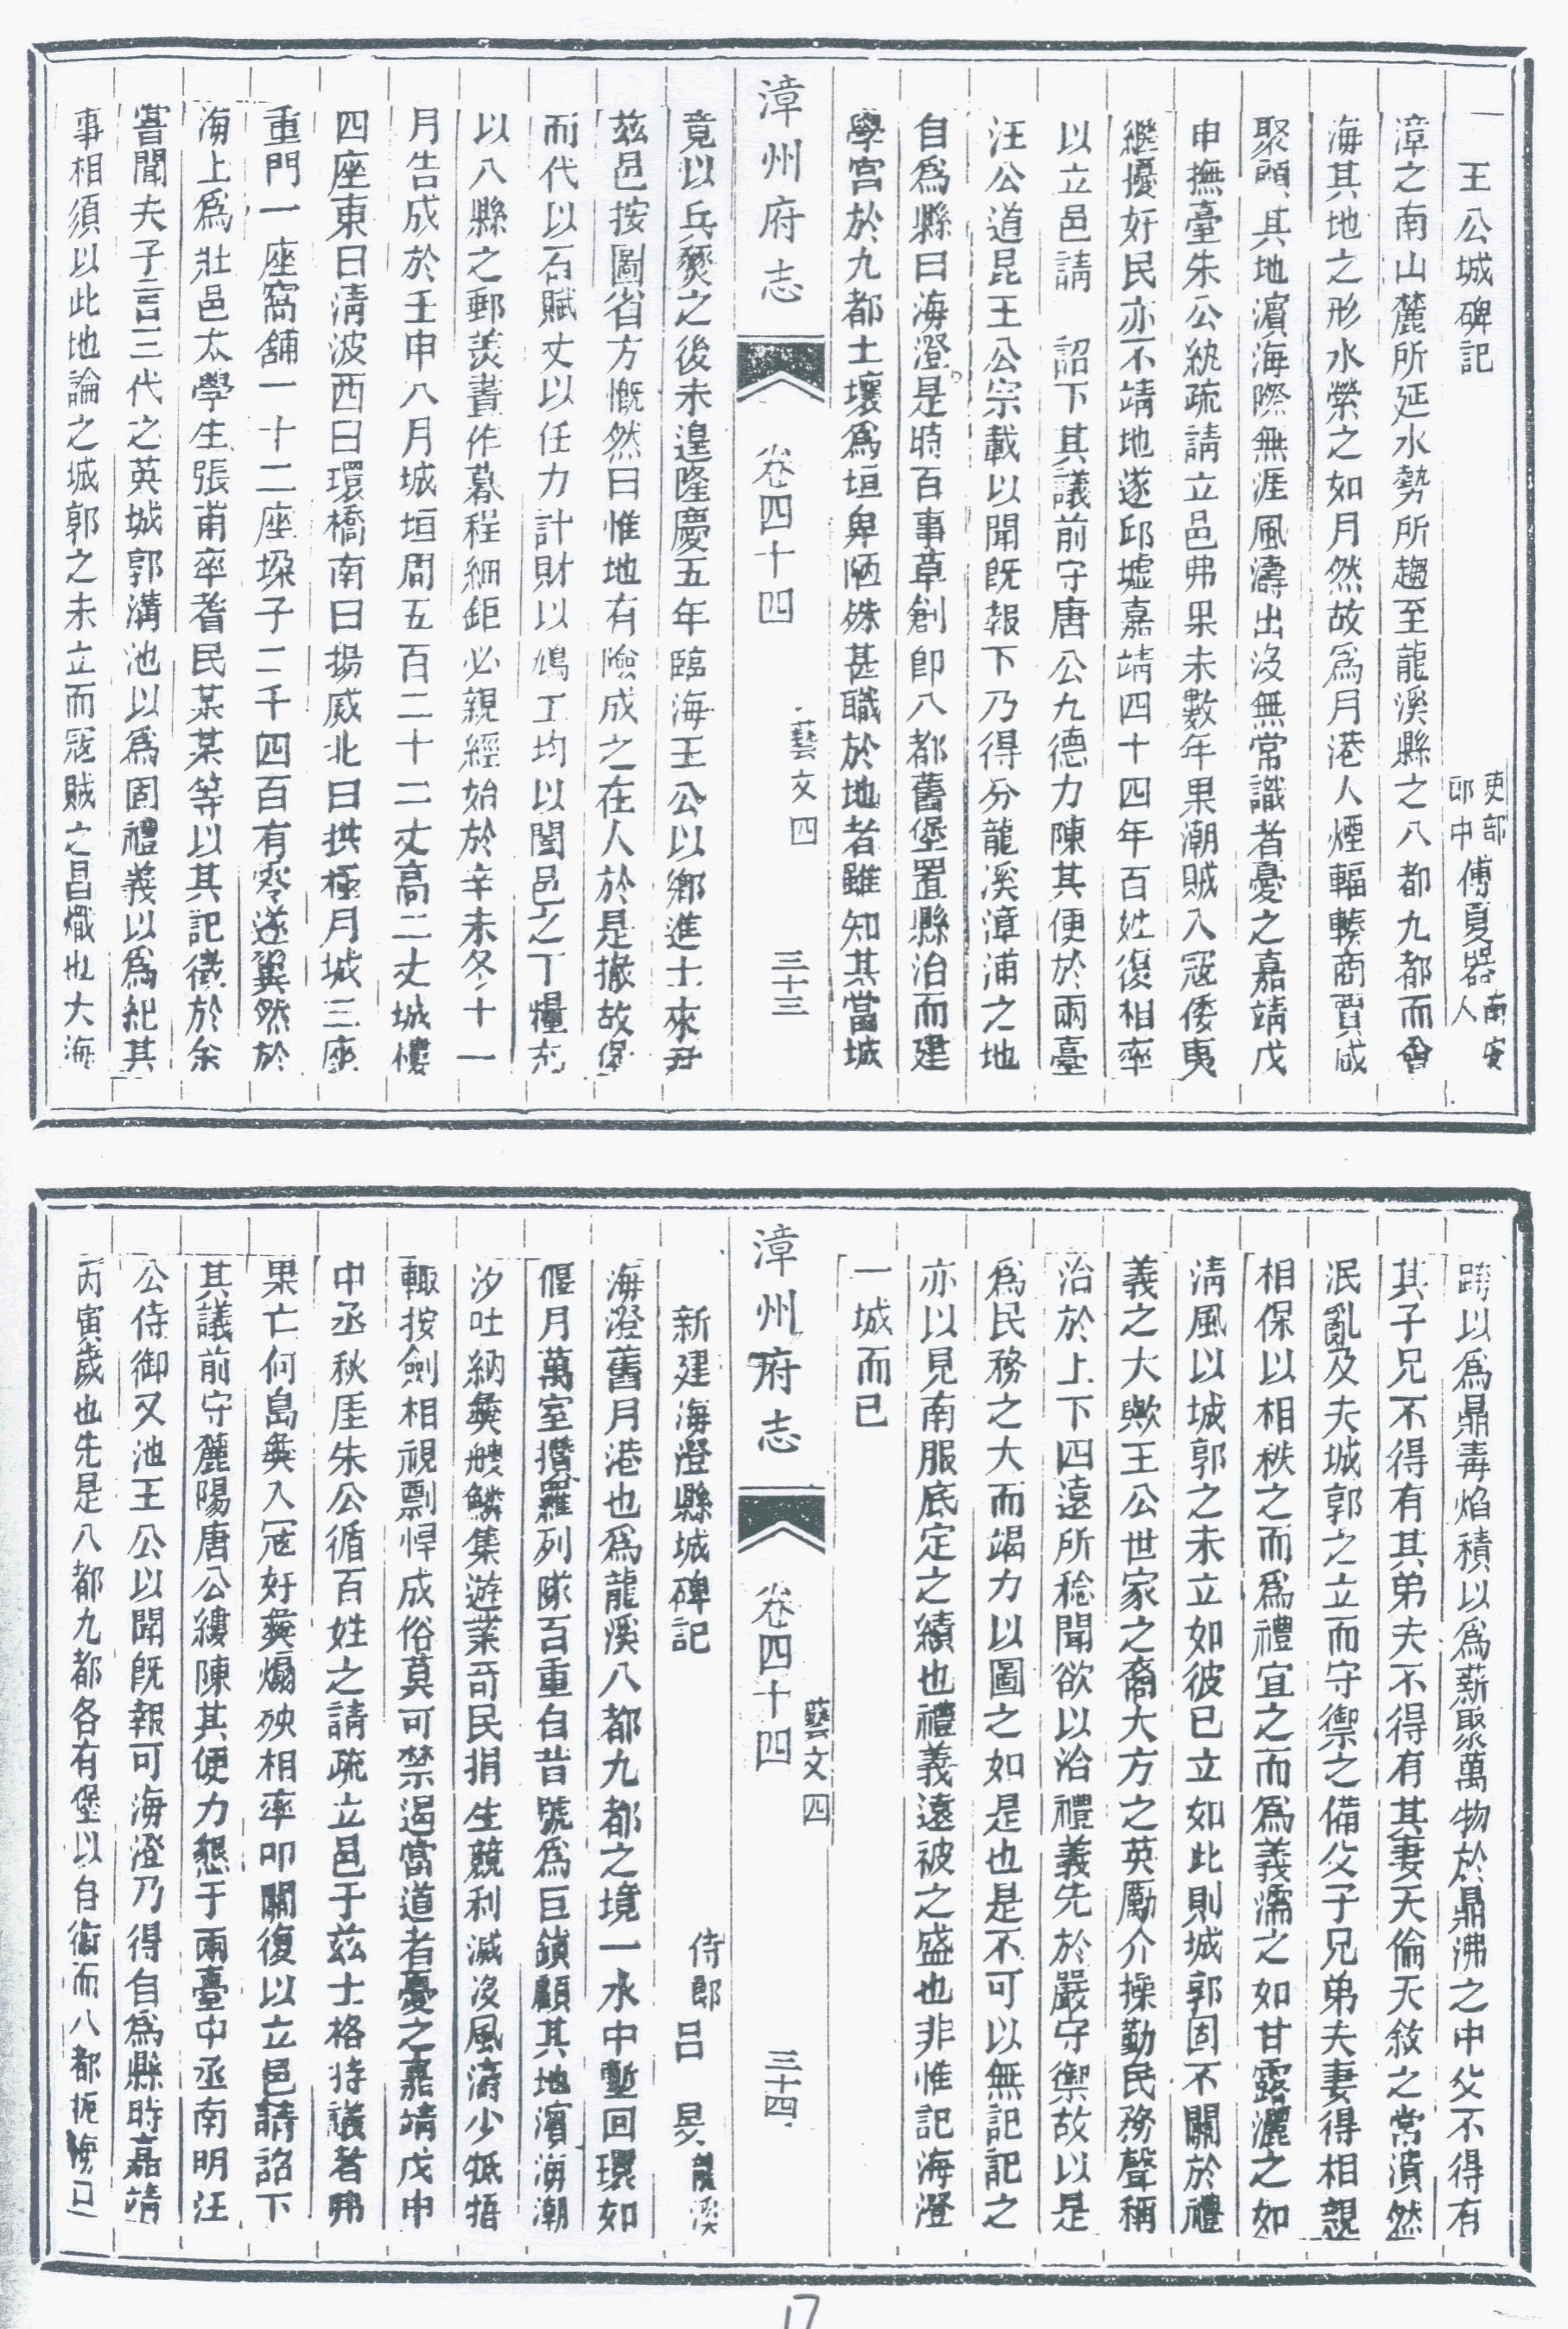 王公城碑記　吏部郎中傅夏器南安人
漳之南山麓所延水勢所趨至龍溪縣之八都九都而會
海其地之形水縈之如月然故爲月港人煙輻輳商賈咸
聚顧其地濱海際無涯風濤出沒無常識者憂之嘉靖戊
申撫臺朱公紈疏請立邑弗果未數年果潮賊入寇倭夷
繼擾奸民亦不靖地遂邱墟嘉靖四十四年百姓復相率
以立邑請　詔下其議前守唐公九德力陳其便於兩臺
汪公道昆王公宗載以聞旣報下乃得分龍溪漳浦之地
自爲縣曰海澄是時百事草創卽八都舊堡置縣治而建
學宮於九都土壤爲垣卑陋殊甚職於地者雖知其當城
漳州府志　卷四十四　藝文四　三十三
竟以兵燹之後未遑隆慶五年臨海王公以鄉進士來尹
茲邑按圖省方慨然曰惟地有險成之在人於是撤故堡
而代以石賦丈以任力計財以鳩工均以闔邑之丁糧充
以八縣之郵羨晝作暮程細鉅必親經始於辛未冬十一
月告成於壬申八月城垣周五百二十二丈高二丈城樓
四座東曰淸波西曰環橋南曰揚威北曰拱極月城三座
重門一座窩舖一十二座垛子二千四百有零遂翼然於
海上爲壯邑太學生張甫率耆民某某等以其記徵於余
嘗聞夫子言三代之英城郭溝池以爲固禮義以爲紀其
事相須以此地論之城郭之未立而寇賊之昌熾也大海
跨以爲鼎毒焰積以爲薪聚萬物於鼎沸之中父不得有
其子兄不得有其弟夫不得有其妻天倫天敘之常潰然
泯亂及夫城郭之立而守禦之備父子兄弟夫妻得相親
相保以相秩之而爲禮宜之而爲義濡之如甘露灑之如
淸風以城郭之未立如彼已立如此則城郭固不關於禮
義之大歟王公世家之裔大方之英勵介操勤民務聲稱
洽於上下四遠所稔聞欲以治禮義先於嚴守禦故以是
爲民務之大而竭力以圖之如是也是不可以無記記之
亦以見南服底定之績也禮義遠被之盛也非惟記海澄
一城而已
漳州府志　卷四十四　藝文四　三十四
新建海澄縣城碑記　侍郎呂旻龍溪
海澄舊月港也爲龍溪八都九都之境一水中塹回環如
偃月萬室攢羅列隊百重自昔號爲巨鎮顧其地濱海潮
汐吐納彝艘鱗集遊業奇民捐生競利滅沒風濤少牴牾
輒按劍相視剽悍成俗莫可禁遏當道者憂之嘉靖戊申
中丞秋厓朱公循百姓之請疏立邑于茲士格持議者弗
果亡何島彝入寇奸彝煽殃相率叩關復以立邑請詔下
其議前守麓陽唐公縷陳其便力懇于兩臺中丞南明汪
公侍御又池王公以聞旣報可海澄乃得自爲縣時嘉靖
丙寅歲也先是八都九都各有堡以自衞而八都扼海口
17